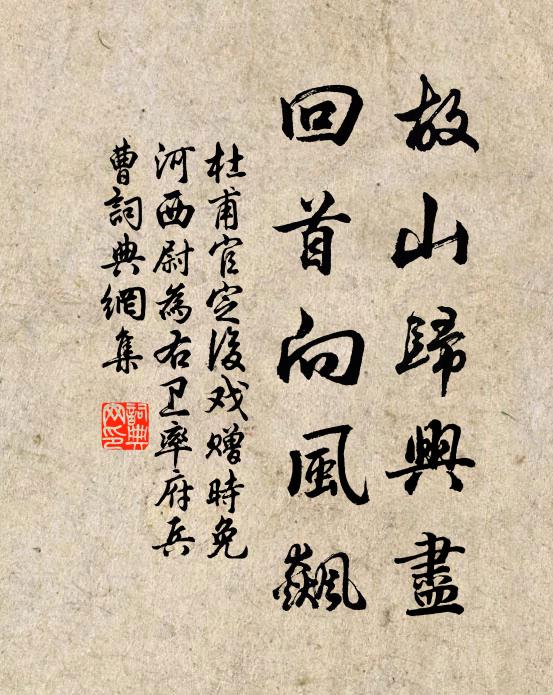 故山歸興盡
回首向風飆
杜甫官定後戏赠時免
河西尉為右卫率府兵
曹詞典網集
詞典
网印